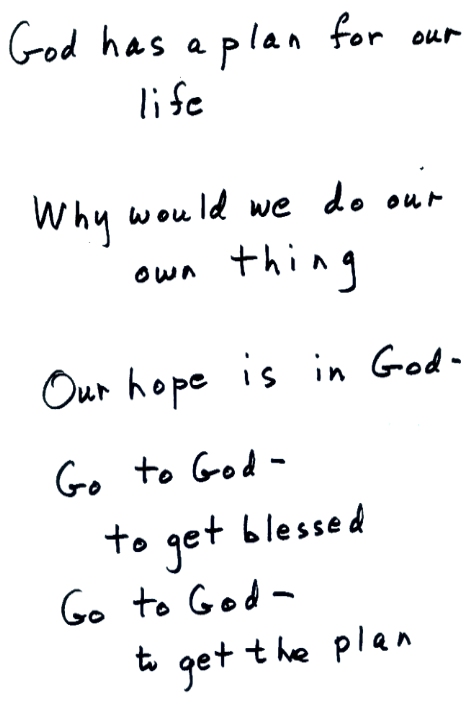 God has a plan for our
life
Why would we do our
own thing
Our hope is in God-
Go to God-
to get blessed
Go to God-
to get the plan